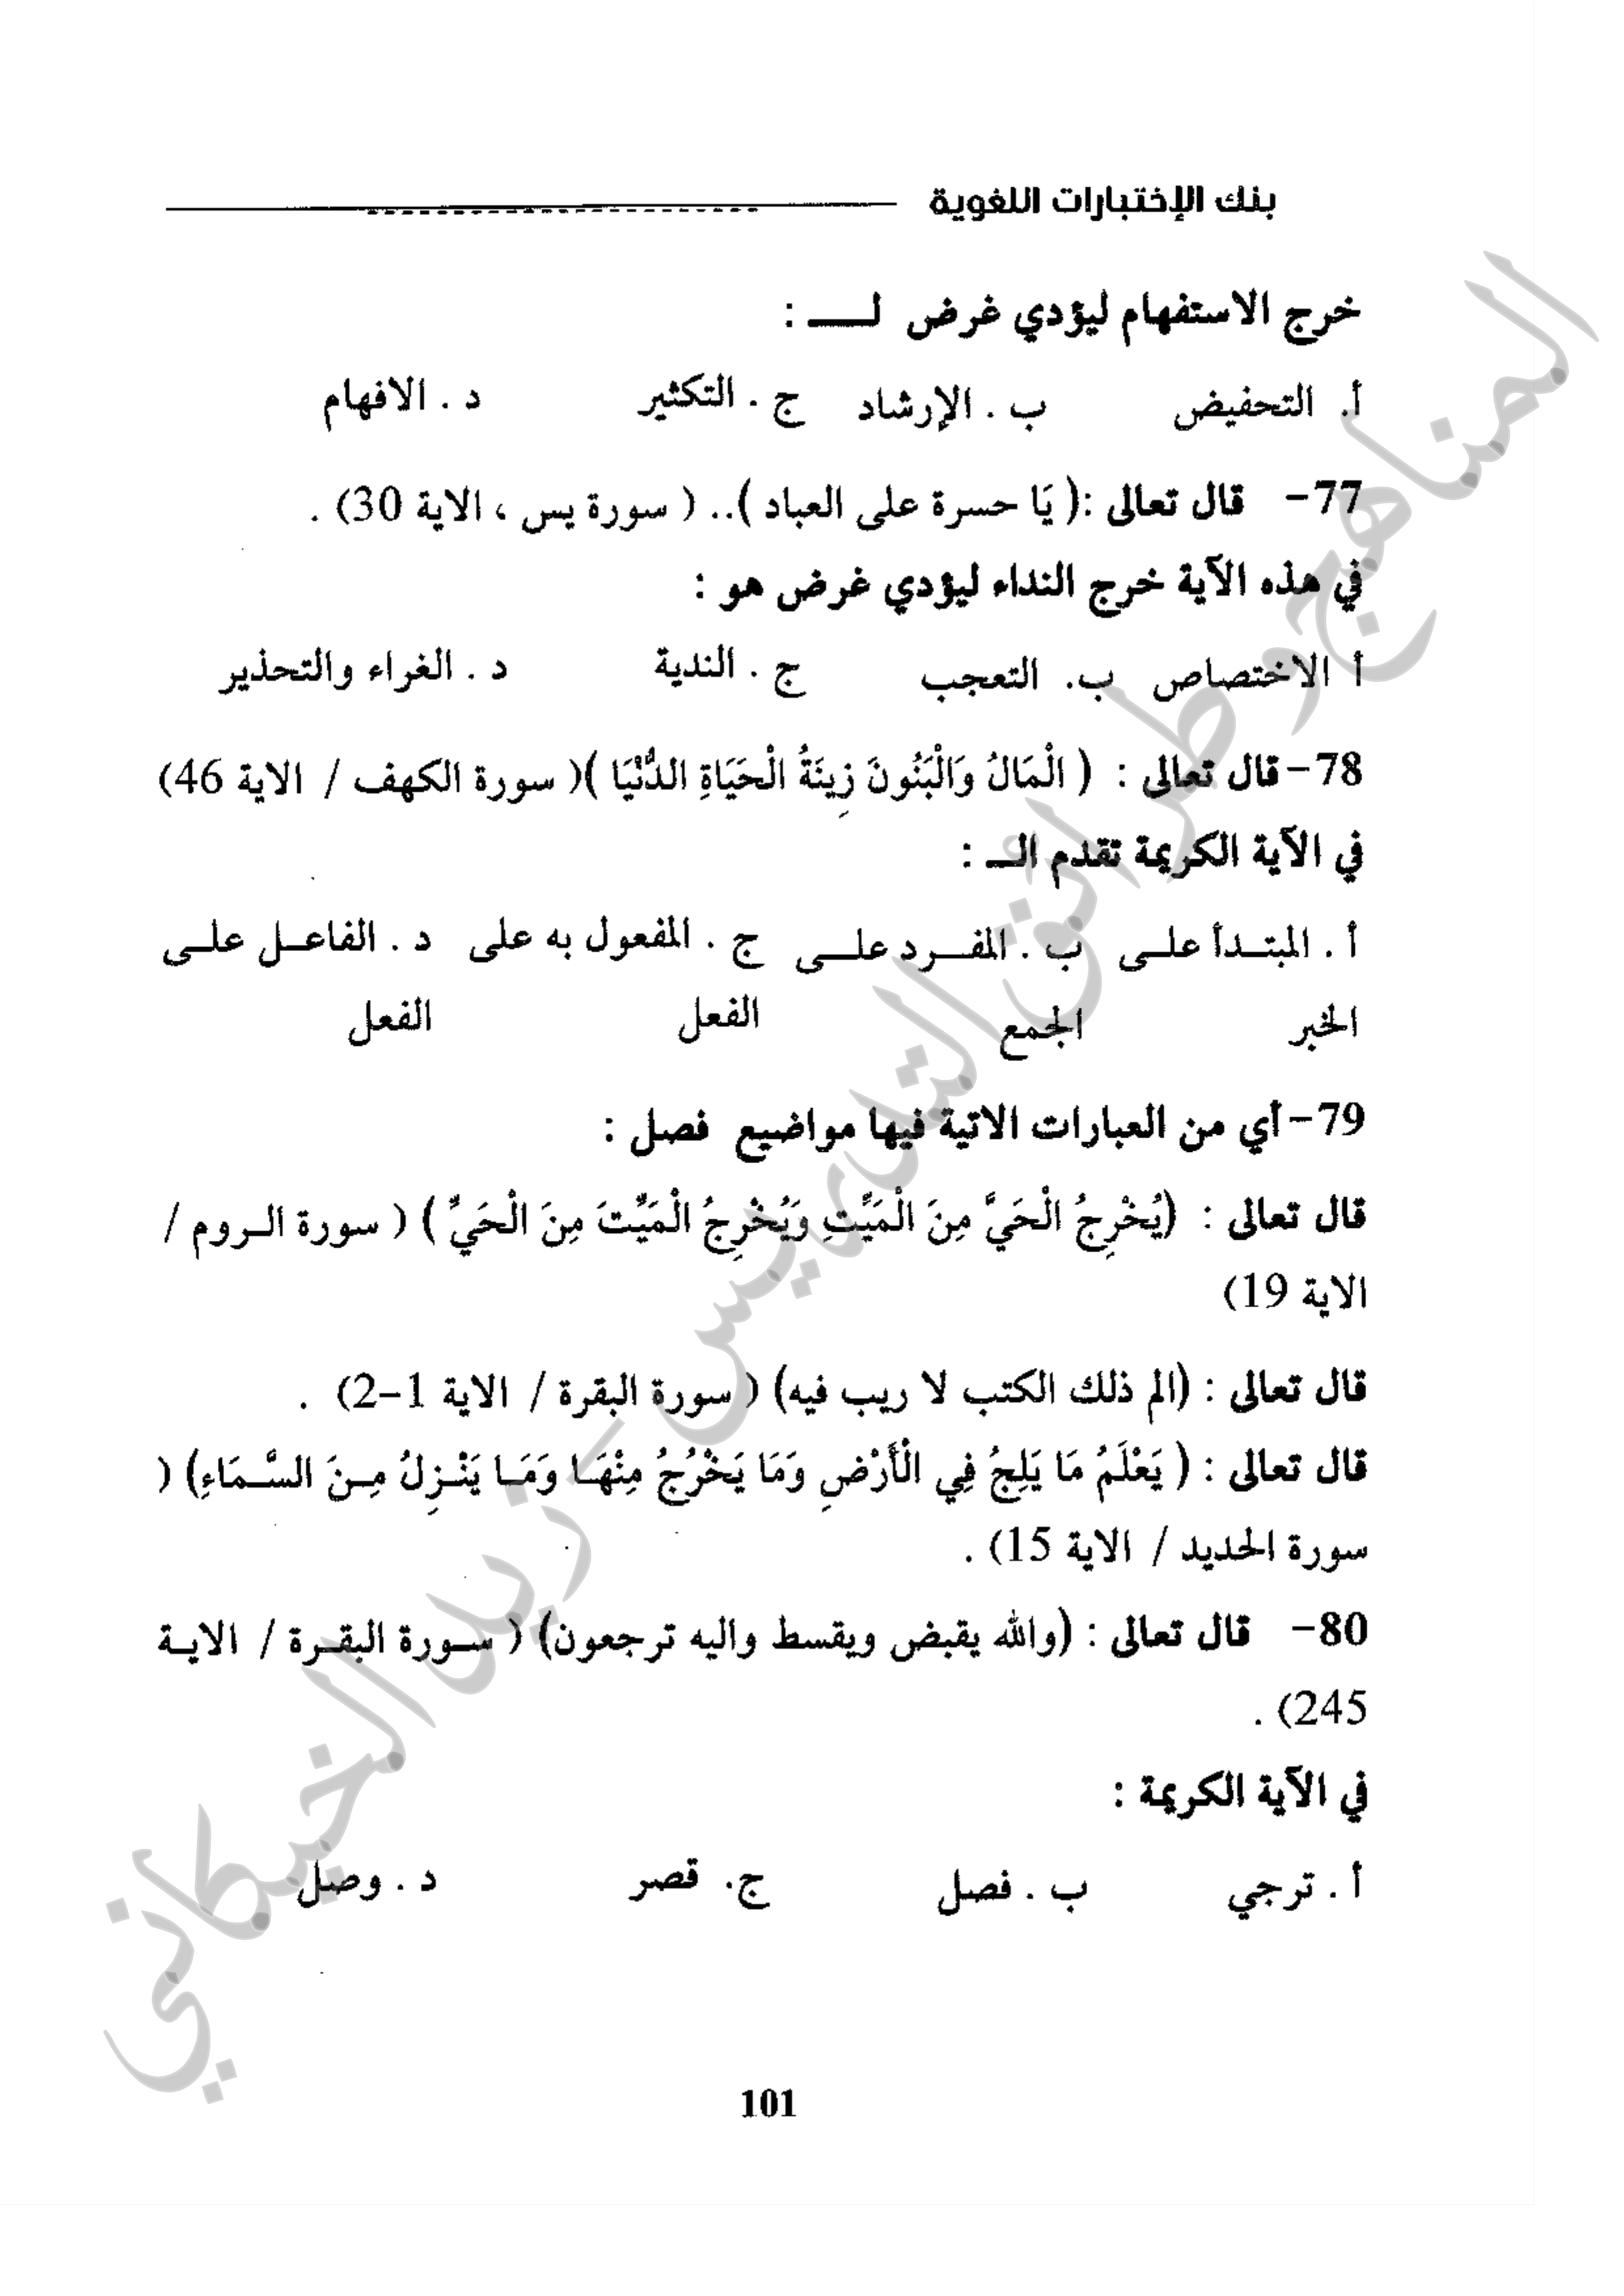 بنك الإختبارات اللغوية
خرج الاستفهام ليؤدي غرض لـــــ :
أ. التحفيض ب . الإرشاد ج . التكثير د . الافهام
77- قال تعالى :( يَا حسرة على العباد ).. ( سورة يس ، الاية 30) .
في هذه الآية خرج النداء ليؤدي غرض هو :
أ الاختصاص ب. التعجب ج . الندية د . الغراء والتحذير
78- قال تعالى : ( الْمَالُ وَالْبَنُونَ زِينَةُ الْحَيَاةِ الدُّنْيَا )( سورة الكهف / الاية 46)
في الآية الكريمة تقدم الـــ :
أ . المبتــدأ علــى ب . المفـــرد علـــى ج . المفعول به على د . الفاعــل علــى
الخبر الجمع الفعل الفعل
79- أي من العبارات الاتية فيها مواضيع فصل :
قال تعالى : (يُخْرِجُ الْحَيَّ مِنَ الْمَيِّتِ وَيُخْرِجُ الْمَيِّتَ مِنَ الْحَيِّ ) ( سورة الــروم /
الاية 19)
قال تعالى : (الم ذلك الكتب لا ريب فيه) ( سورة البقرة / الاية 1-2) .
قال تعالى : ( يَعْلَمُ مَا يَلِجُ فِي الْأَرْضِ وَمَا يَخْرُجُ مِنْهَـا وَمَـا يَنْـزِلُ مِـنَ السَّـمَاءِ) (
سورة الحديد / الاية 15) .
80- قال تعالى : (والله يقبض ويقسط واليه ترجعون) ( سـورة البقـرة / الايـة
245) .
في الآية الكريمة :
أ . ترجي ب . فصل ج. قصر د . وصل
101
المناهج وطرائق التدريس - زيد الخيكاني